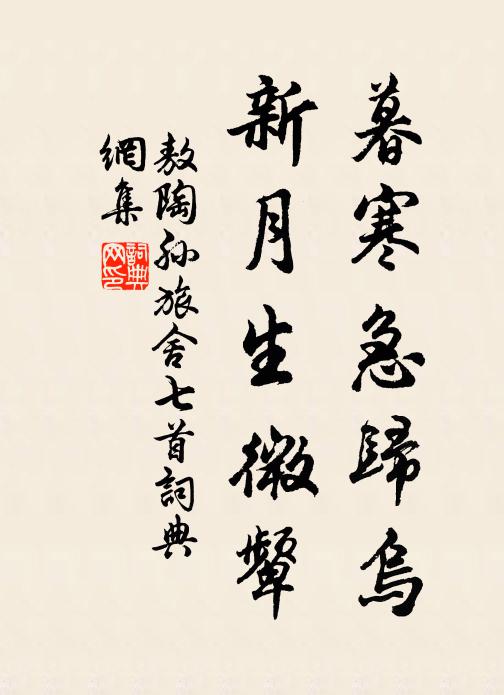 暮寒急歸烏
新月生微顰
敖陶孫旅舍七首詞典
網集
詞典
網印